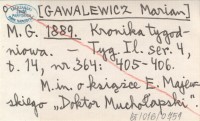 [GAWALEWICZ Marian]
M. G. 1889. Kronika tygod-
niowa. Tyg. Il. ser. 4,
t. 14, nr 364: 405-406.
M. in. o książce E. Majew-
skiego „Doktor Muchołapski".